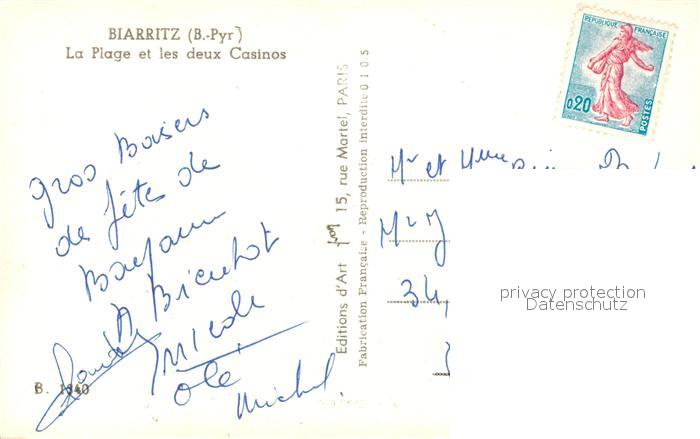 BIARRITZ (B.-Pyr)
La Plage et les deux Casinos
gros Baisers
de fêtes de
A Bientôt
Nicole
olé
Michel
B. 1340
Editions d'Art 15, rue Martel, PARIS
Fabrication Française - Reproduction interdite 0105
REPUBLIQUE FRANÇAISE
0,20
POSTES
Mr et Mme
34,
privacy protection
Datenschutz